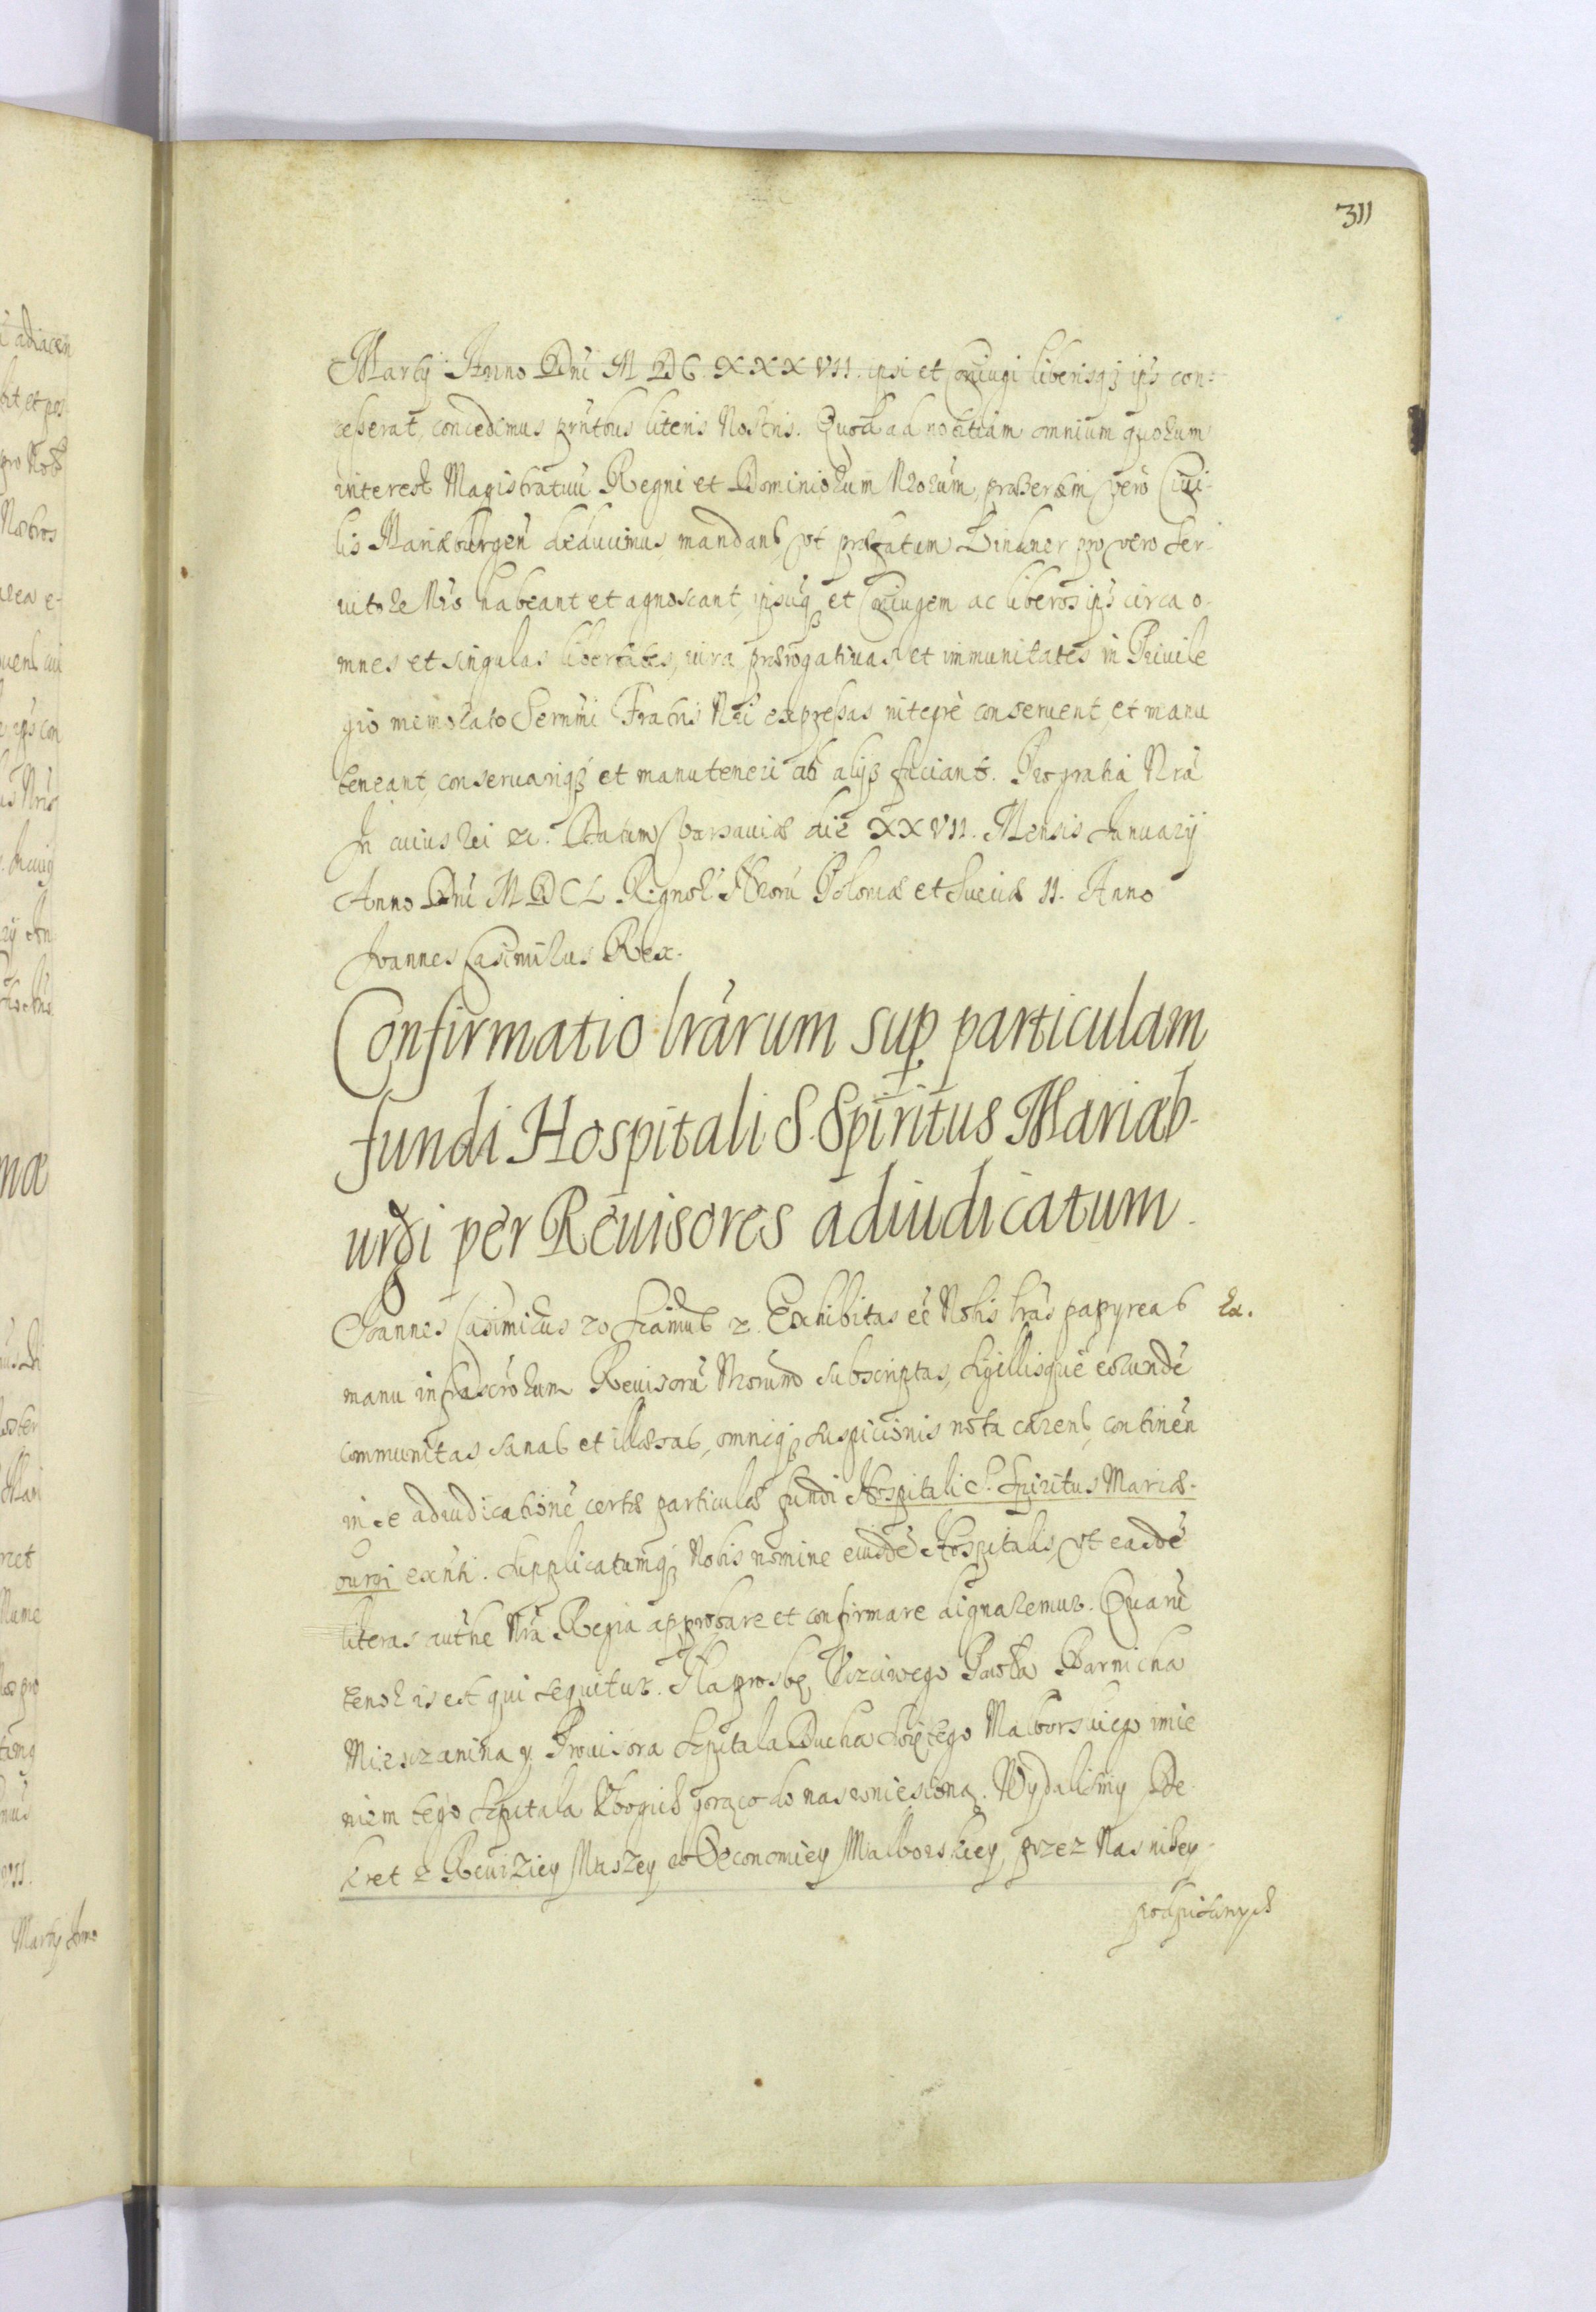 311
Martij Anno Dni M DC XXXVII. ipsi et Coniugi liberisq3 ips con-
cesserat, concedimus pntbus literis Nostris. Quod ad notitiam omnium quorum
interest Magistratuu Regni et Dominiorum Nrorum, praesertim vero Civi-
lis Mariaeburgen deducimus, mandans, vt praefatum Linkner pro vero Ser-
uitore Nro habeant et agnoscant, ipsuq et Coniugem ac liberos ips circa o-
mnes et singulas libertates, iura, praerogatiuas et immunitates in Priuile
gio memorato Sermi Fratris Nri expressas integrè conseruent, et manu
teneant, conseruariq3 et manuteneri ab alijs faciant. Pro gratia Nra
In cuius rei &. Datum Varsauiae die XXVII. Mensis January
Anno Dni M DCL Regnor Nroru Poloniae et Sueciae II. Anno
Joannes Casimirus Rex.
Confirmatio lrarum sup particulam
fundi Hospitali S. Spiritus Mariaeb-
urgi per Reuisores adiudicatum.
Joannes Casimirus &. Exhibitas ee Nobis lras papyreas
manu infrascrorum Reuisoru Nrorum subscriptas, sigillisque eorunde
communitas sanas et illaesas, omniq3 suspicionis nota carens, continen
in se adiudicatione certae particulae fundi Hospitali S. Spiritus Mariae-
burgi exnti. Supplicatumq3 Nobis nomine eiusde Hospitalis, vt easde
literas authe Nra Regia approbare et confirmare dignaremur. Quaru
tenor is est qui sequitur. Na prosbę Vczciwego Pawła Barnicha
Mieszczanina y Prouisora Szpitala Ducha Swiętego Malborskiego imie
niem tego Szpitala Vbogich gorąco do nas wniesioną. Wydalismy De-
kret z Reuiziey Naszey w Oeconomiey Malborskiey, przez Nas nizey-
podpisanych